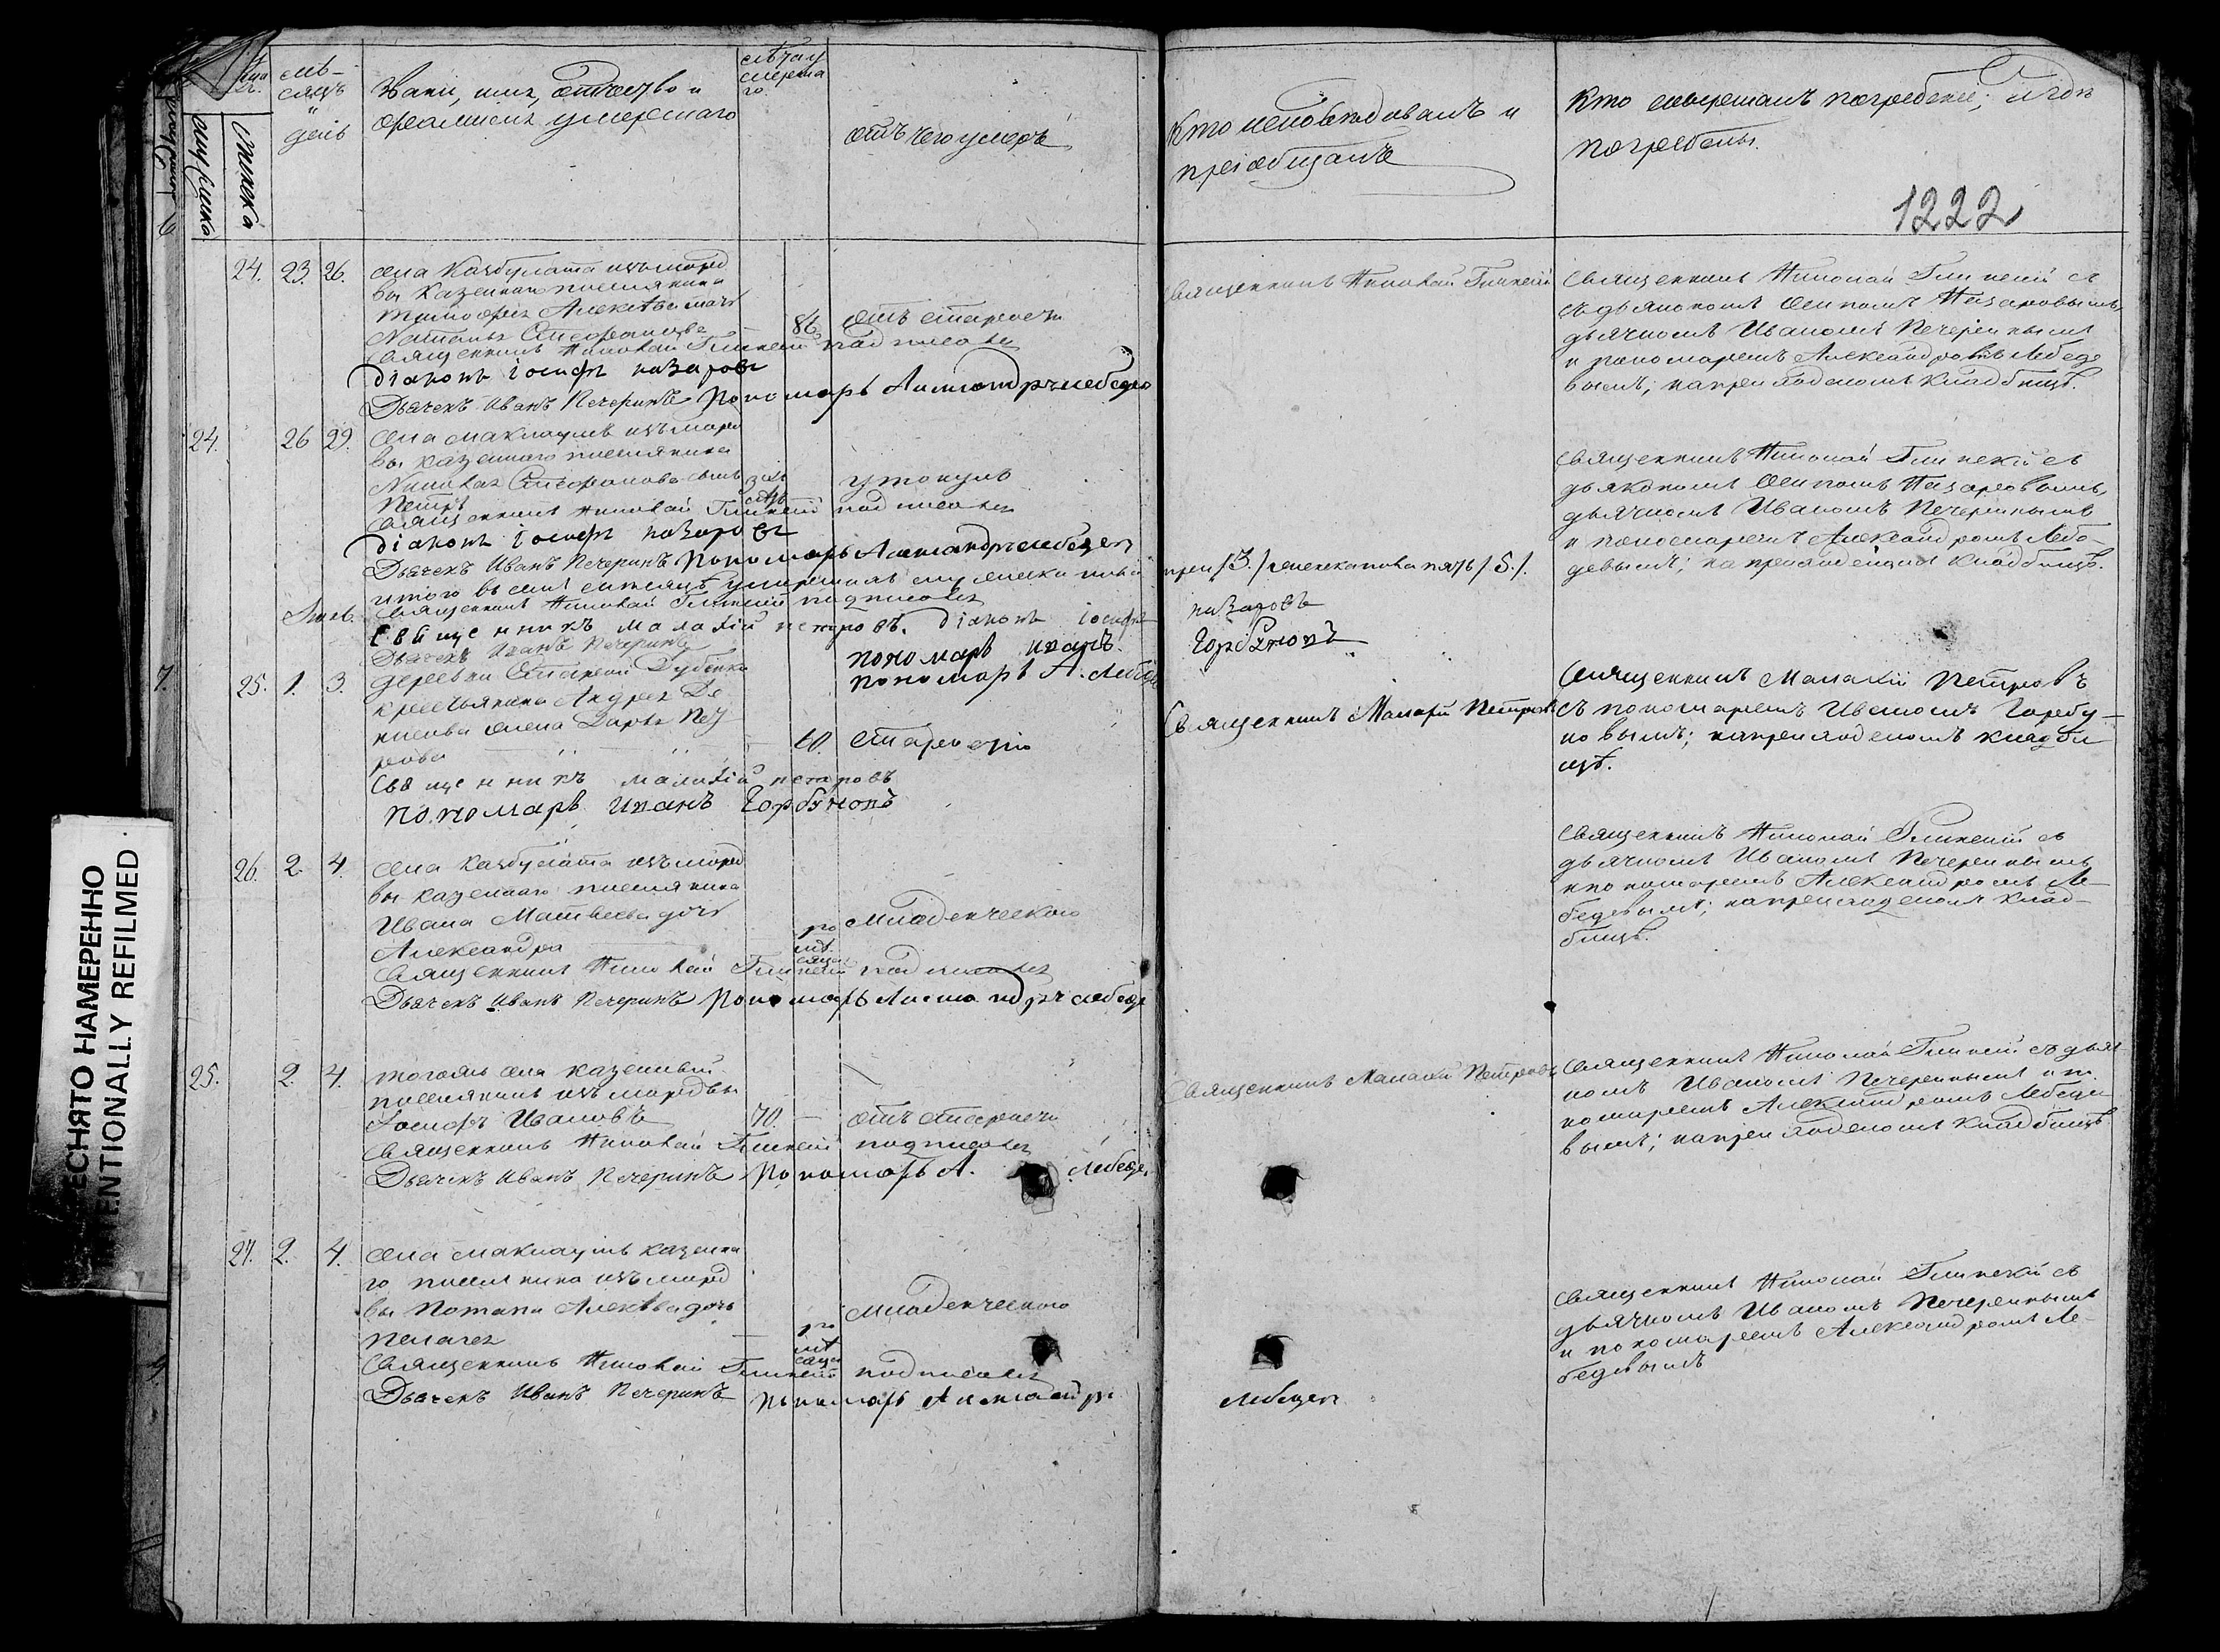 мѣ-
сяцъ
и
день
Званіе, имя, отчество и
фамилія умершаго
лѣта у
мерша
го.
отъ чего умеръ
Кто исповѣдывалъ и
пріобщалъ
Кто совершалъ погребеніе; и гдѣ
погребены.
мужеска
женска
1222
24. 23. 26.
села Качбулата изъ морд
вы казеннаго поселянина
Тимофея Алексѣева мать
Наталья Стефанова — 86.
отъ старости
Священникъ Николай Глинскій подписался
діаконъ іосифъ назаровъ
Дьячекъ Иванъ Печеринъ Пономарь Александръ лебедев
Священникъ Николай Глинскій
Священникъ Николай Глинскій съ
дьякономъ Осипомъ Назаровымъ,
дьячкомъ Иваномъ Печеринымъ
и пономаремъ Александромъ Лебеде
вымъ; на приходскомъ кладбищѣ.
24. 26 29.
села Маклаушъ изъ морд
вы казеннаго поселянина
Николая Стефанова сынъ
Петръ
утонулъ
Священникъ Николай Глинскій подписался
діаконъ іосифъ назаровъ
Дьячекъ Иванъ Печеринъ Пономарь Александръ лебедев
Священникъ Николай Глинскій съ
дьякономъ Осипомъ Назаровымъ,
дьячкомъ Иваномъ Печеринымъ
и пономаремъ Александромъ Лебе-
девымъ; на приходскомъ кладбищѣ.
итого въ семъ мѣсяцѣ умершихъ мужеска пола
три /3./ женска пола пять /5/.
Священникъ Николай Глинскій подписался
Священникъ малахій петровъ. діаконъ іосифъ
назаровъ
Дьячекъ Иванъ Печеринъ
пономарь иванъ
Горбуновъ
пономарь А. Лебедев
7.
25. 1. 3.
деревни Старой Дубенки
крестьянина Андрея Де
нисова жена Дарья Пет
рова — 60. старостію
Священникъ малахій петровъ
пономарь иванъ Горбуновъ
Священникъ Малахій Петровъ
Священникъ Малахій Петровъ
съ пономаремъ Иваномъ Горбу-
новымъ; на приходскомъ кладби
щѣ.
26. 2. 4.
села Качбулата изъ морд
вы казеннаго поселянина
Ивана Матвеева дочь
Александра
младенческою
Священникъ Николай Глинскій подписался
Дьячекъ Иванъ Печеринъ Пономарь Александръ лебеде
Священникъ Николай Глинскій съ
дьячкомъ Иваномъ Печеринымъ
и пономаремъ Александромъ Ле-
бедевымъ; на приходскомъ клад-
бищѣ.
25. 2. 4.
тогожъ села казенный
поселянинъ изъ мордвы
Іосифъ Ивановъ 70. — отъ старости
Священникъ Николай Глинскій подписался
Дьячекъ Иванъ Печеринъ Пономарь А. Лебедев
Священникъ Малахій Петровъ
Священникъ Николай Глинскій съ дьяч
комъ Иваномъ Печеринымъ и по
номаремъ Александромъ Лебеде
вымъ; на приходскомъ кладбищѣ
27. 2. 4.
села Маклаушъ казенна
го поселянина изъ морд
вы Потапа Алексѣева дочь
Пелагея
младенческою
Священникъ Николай Глинскій подписался
Дьячекъ Иванъ Печеринъ Пономарь Александръ
Лебедев
Священникъ Николай Глинскій съ
дьячкомъ Иваномъ Печеринымъ
и пономаремъ Александромъ Ле-
бедевымъ
ЕСНЯТО НАМЕРЕННО
ENTIONALLY REFILMED